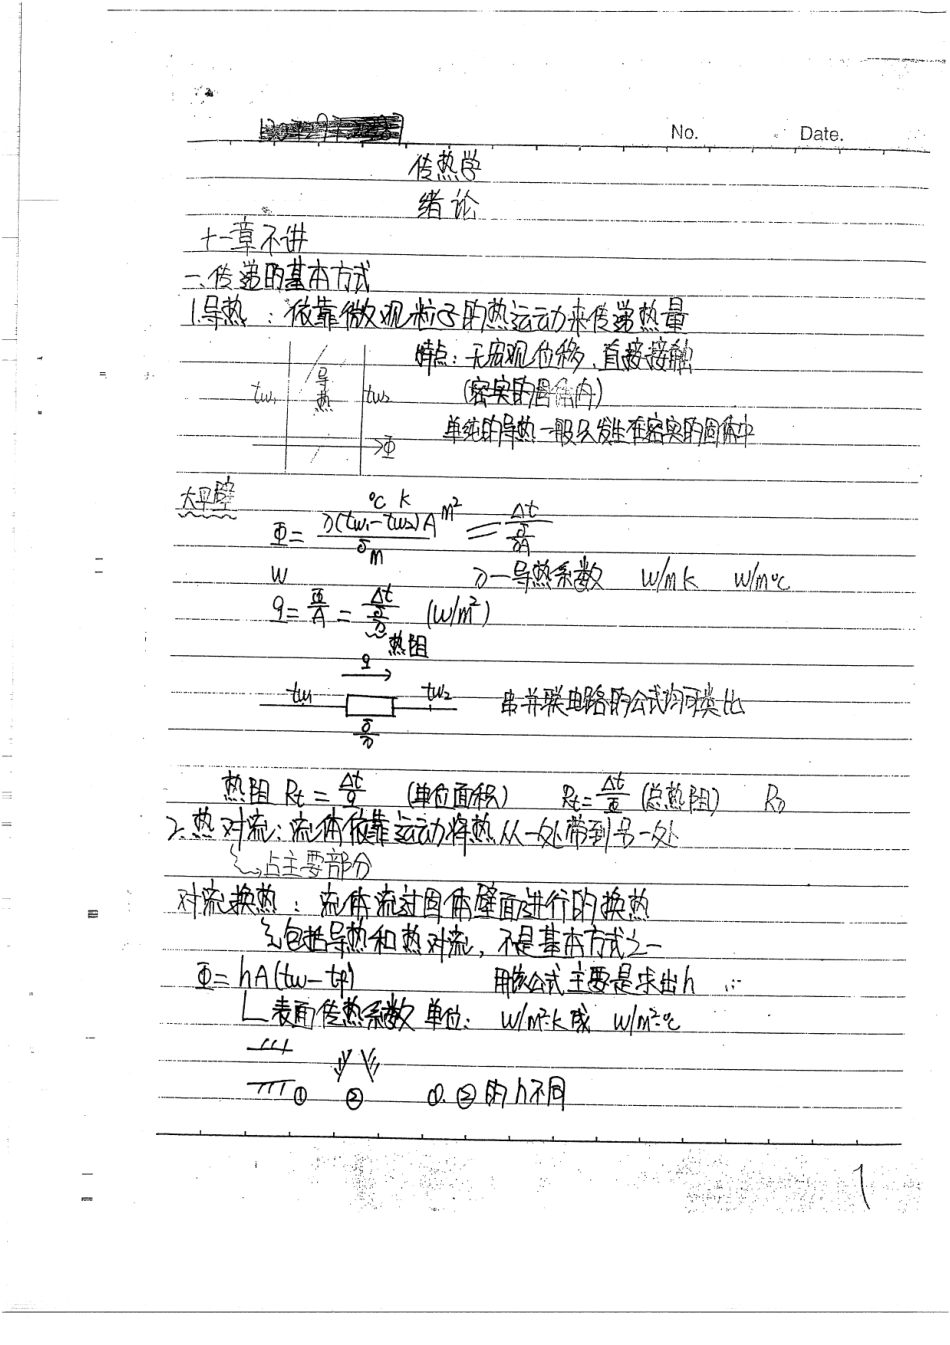 No. Date.
传热学
绪论
十一章不讲
一、传递的基本方式
1.导热：依靠微观粒子的热运动来传递热量
特点：无宏观位移、直接接触
tw₁ 导热 tw₂
(密实的固体内)
单纯的导热一般只发生在密实的固体中
Φ
大平壁
℃ K
Φ = λ(tw₁-tw₂)A m² / δ m = Δt / (δ/λA)
W λ—导热系数 W/mK W/m℃
q = Φ/A = Δt / (δ/λ) (W/m²)
热阻
q
tw₁ tw₂ 串并联电路的公式均可类比
δ/λ
热阻 Rt = Δt/q (单位面积) Rt = Δt/Φ (总热阻)
2.热对流：流体依靠运动将热从一处带到另一处
占主要部分
对流换热：流体流过固体壁面进行的换热
包括导热和热对流，不是基本方式之一
Φ = hA(tw-tf) 用该公式主要是求出h
表面传热系数 单位：W/m²·K或 W/m²·℃
① ② ①.②的h不同
1